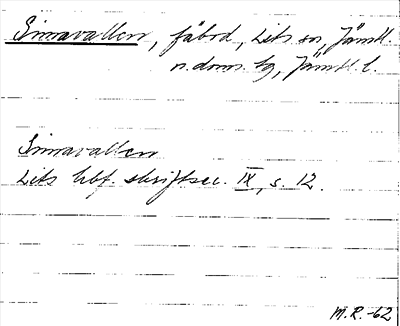 Sinnavallen, fäbod, Lits sn, Jämtl.
n. doms. hg, Jämtl. l.
Sinnavallen
Lits hbf. skriftser. IX, s. 12.
M.R.-62